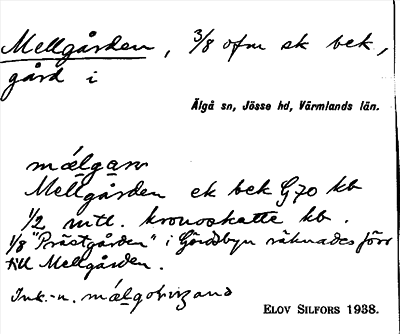 Mellgården, 3/8 ofm sk bek,
gård i
Älgå sn, Jösse hd, Värmlands län.
Mellgården ek bek G70 kb
1/2 mtl. kronoskatte kb.
1/8 "Prästgården" i Gördsbyn räknades förr
till Mellgården.
Ink.-n.
ELOV SILFORS 1938.